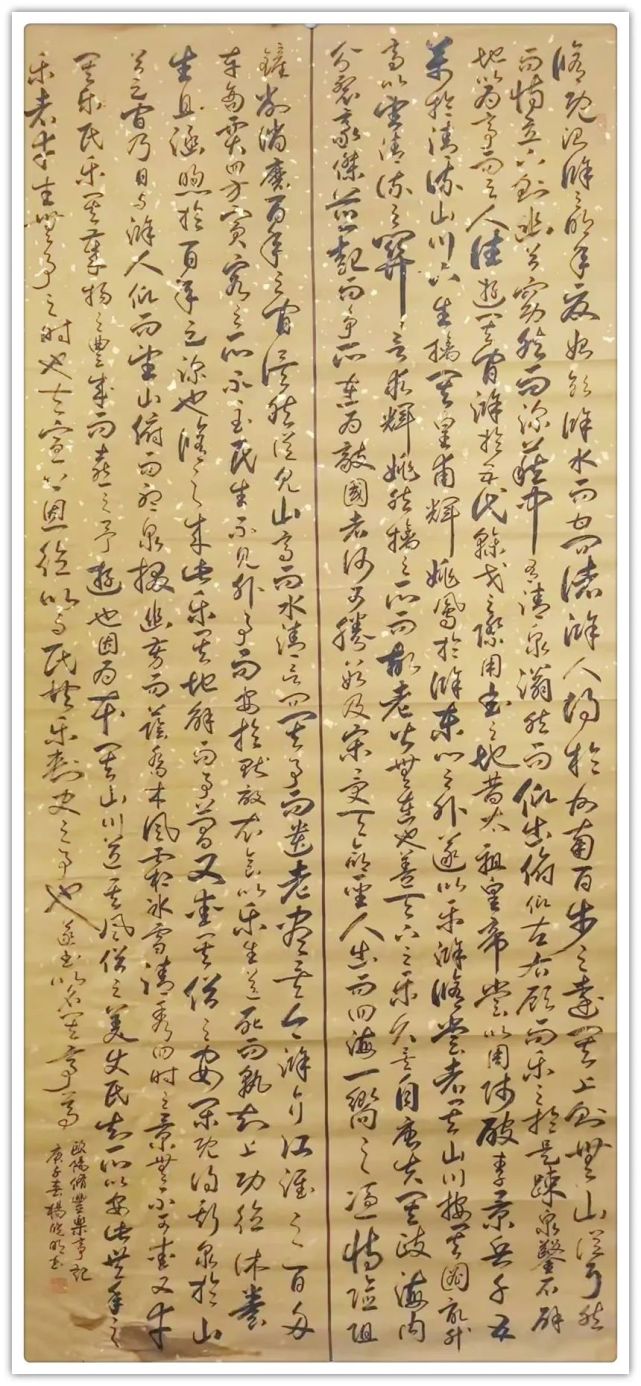 脩既治滁之明年夏始飲滁水而甘問諸滁人得於州南百步之遠其上則豐山聳然
而特立下則幽谷窈然而深藏中有清泉滃然而仰出俯仰左右顧而樂之於是疎泉鑿石闢
地以為亭而與人往遊其間滁於五代幹戈之際用武之地昔太祖皇帝嘗以周師破李景兵千五
萬於清流山下生擒其皇甫輝姚鳳於滁東門之外遂以平滁脩嘗考其山川按其圖記升
高以望清流之關欲求輝姚就擒之所而故老皆無在也蓋天下之平久矣自唐失其政海內
分裂豪傑並起而爭所在為敵國者何可勝數及宋受天命聖人出而四海一嚮之憑恃險阻
鏟削消磨百年之間漠然徒見山高而水清欲問其事而遺老盡矣今滁介江淮之間舟
車商賈四方賓客之所不至民生不見外事而安於畎畝衣食以樂生送死而孰知上功德休養
生息涵煦於百年之深也脩之來此樂其地僻而事簡又愛其俗之安閑既得斯泉於山
谷之間乃日與滁人仰而望山俯而聽泉掇幽芳而蔭喬木風霜冰雪清秀四時之景無不可愛又幸
其樂民樂其歲物之豐成而喜與予遊也因為本其山川道其風俗之美使民知所以安此豐年之
樂者幸生無事之時也夫宣上恩德以與民共樂刺史之事也遂書以名其亭焉
歐陽脩豐樂亭記
庚子春楊曉明書